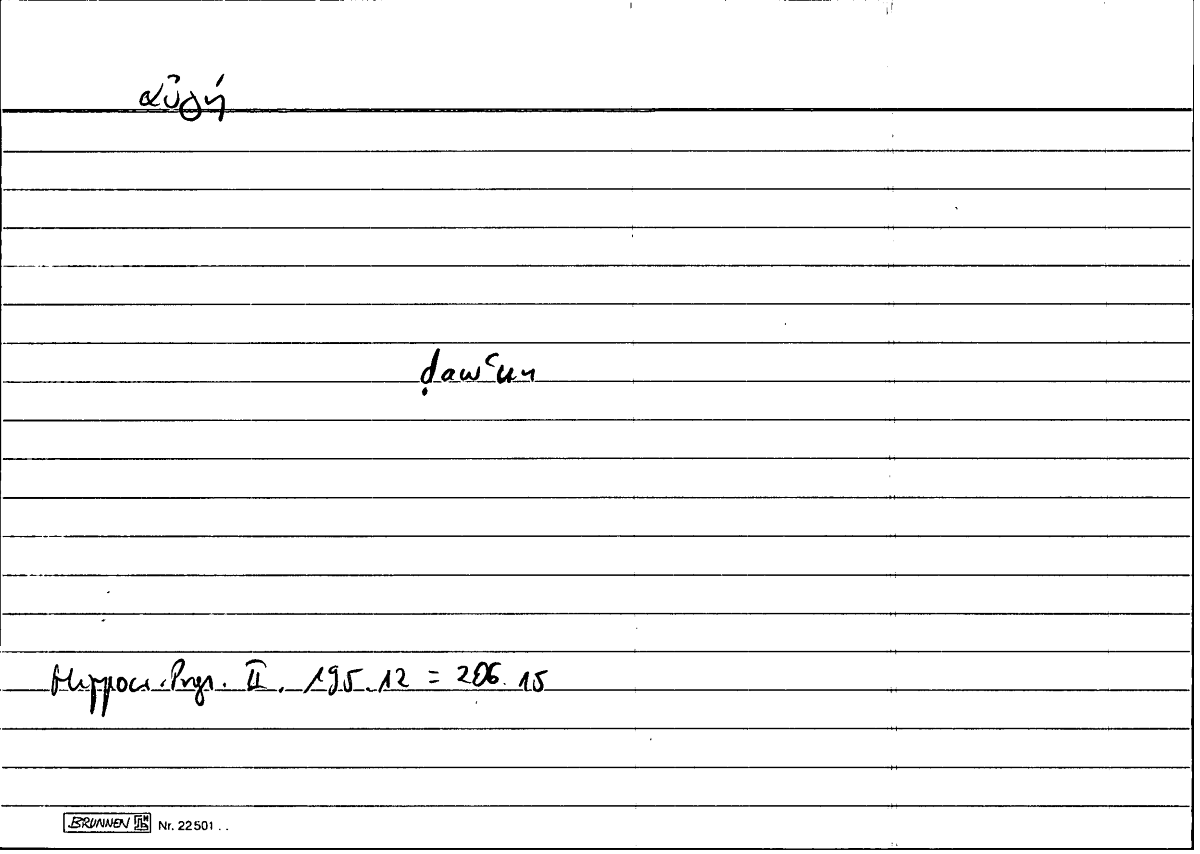 αὐγή
ḍawʾun
Hippocr. Progn. II. 195.12 = 206.15
BRUNNEN Nr. 22501